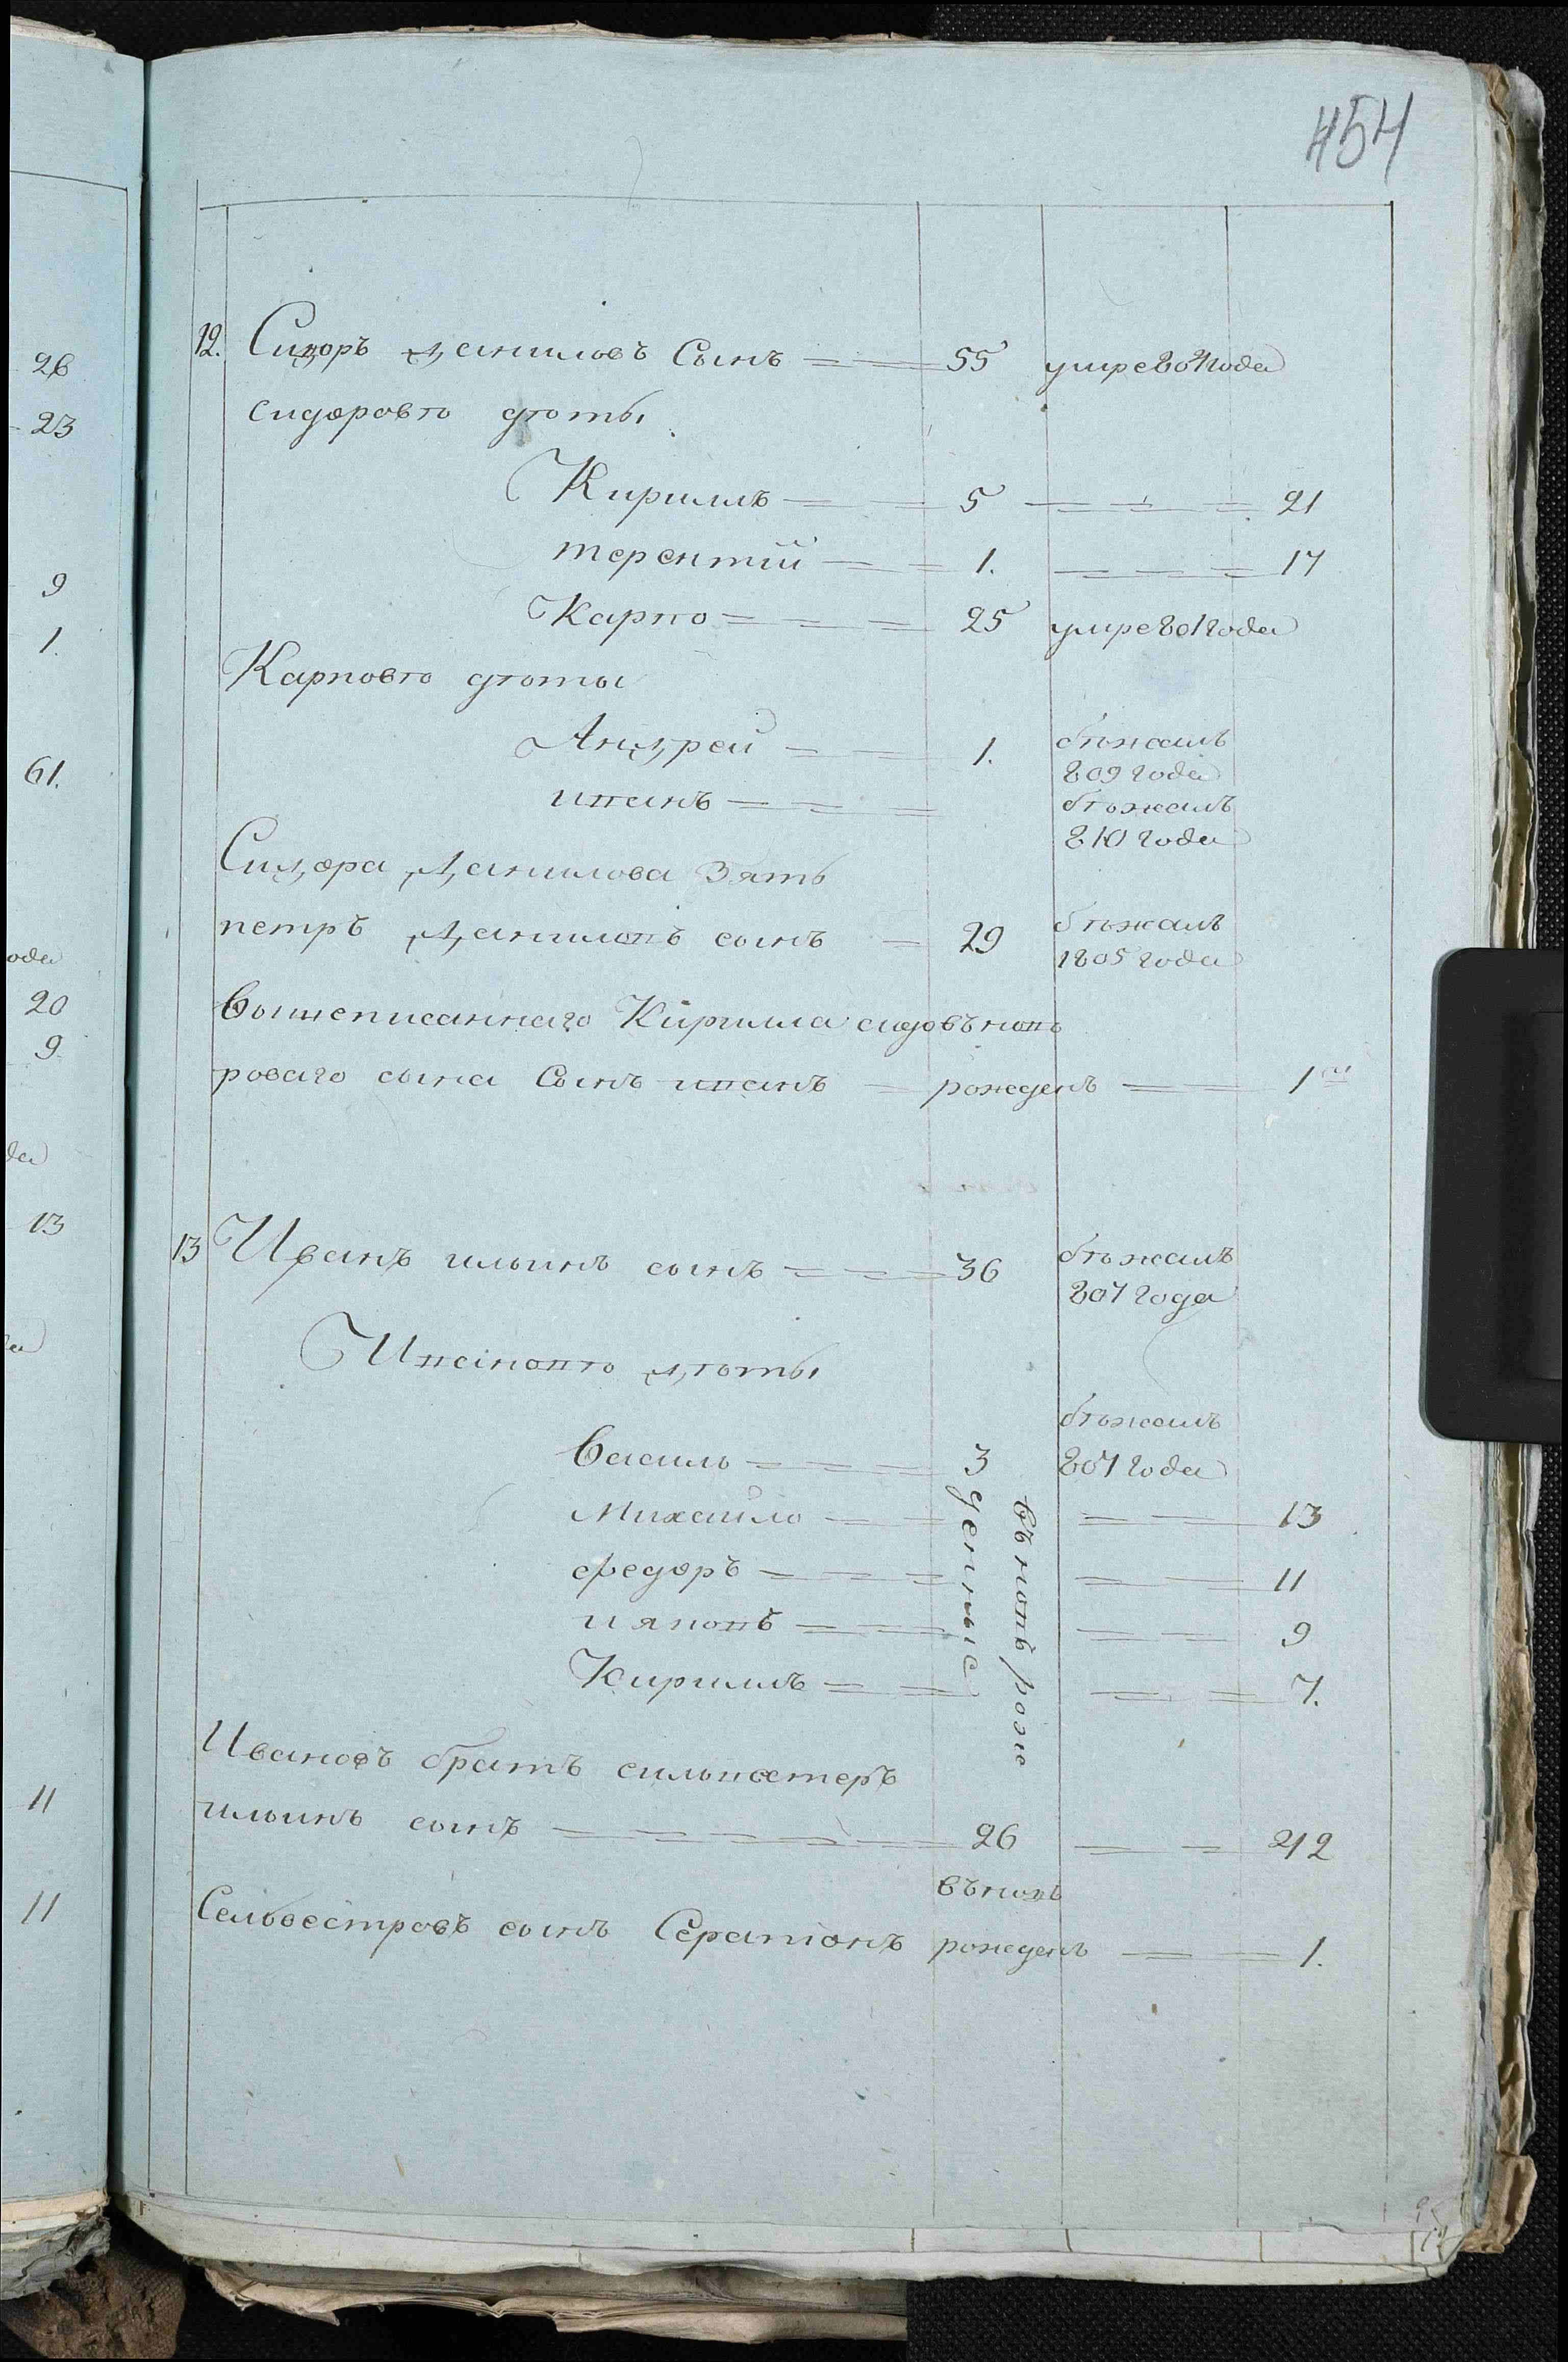 454
12. Сидоръ Даниловъ Сынъ 55 умре804года
сидоровы дѣты
Кириллъ 5 21
терентій 1. 17
Карпо 25 умре801года
Карповы дѣты
Андрей 1. бѣжалъ
809 года
иванъ бѣжалъ
810 года
Сидора Данилова Зять
петръ Даниловъ сынъ 29 бѣжалъ
1805 года
Вышеписаннаго Кирилла сидо въновѣ
роваго сына Сынъ иванъ рожденъ 1
13 Иванъ ильинъ сынъ 36 бѣжалъ
807 года
Ивановы дѣты
бѣжалъ
Василь 3 807 года
Михайло 13
федоръ 11
и яковъ 9
Кириллъ 7.
въновѣ рож
денные
Ивановъ братъ сильвестеръ
ильинъ сынъ 26 42
въновѣ
Сельвестровъ сынъ Сератіонъ рожденъ 1.
26
23
9
1.
61.
ода
20
9
да
13
а
11
11